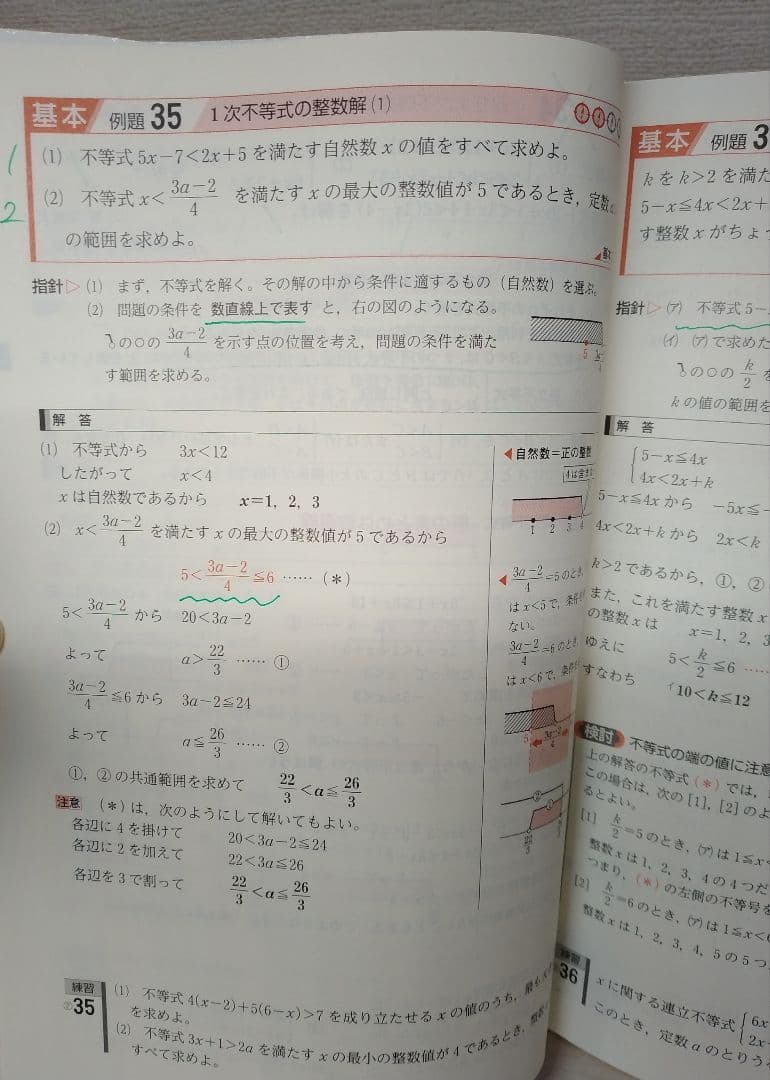 基本 例題 35 1次不等式の整数解(1)
1 (1) 不等式 5x−7<2x+5 を満たす自然数 x の値をすべて求めよ。
2 (2) 不等式 x<(3a−2)/4 を満たす x の最大の整数値が 5 であるとき，定数
の範囲を求めよ。
指針▷ (1) まず，不等式を解く。その解の中から条件に適するもの（自然数）を選ぶ。
(2) 問題の条件を 数直線上で表す と，右の図のようになる。
の○の (3a−2)/4 を示す点の位置を考え，問題の条件を満た
す範囲を求める。
5
解 答
(1) 不等式から 3x<12
したがって x<4
x は自然数であるから x=1，2，3
(2) x<(3a−2)/4 を満たす x の最大の整数値が 5 であるから
5<(3a−2)/4≦6 ……（*）
5<(3a−2)/4 から 20<3a−2
よって a>22/3 …… ①
(3a−2)/4≦6 から 3a−2≦24
よって a≦26/3 …… ②
①，② の共通範囲を求めて 22/3<a≦26/3
注意 （*）は，次のようにして解いてもよい。
各辺に 4 を掛けて 20<3a−2≦24
各辺に 2 を加えて 22<3a≦26
各辺を 3 で割って 22/3<a≦26/3
◀自然数＝正の整数
1 2 3 4
◀(3a−2)/4=5 のとき，
は x<5 で，条件
ない。
(3a−2)/4=6 のとき，
は x<6 で，条件
5 (3a−2)/4
① ②
22/3
練習 35 (1) 不等式 4(x−2)+5(6−x)>7 を成り立たせる x の値のうち，
を求めよ。
(2) 不等式 3x+1>2a を満たす x の最小の整数値が 4 であるとき，
すべて求めよ。
基本 例題 3
k を k>2 を満た
5−x≦4x<2x+
す整数 x がちょ
指針▷ (ア) 不等式 5−
(イ) (ア)で求めた
の○の k/2
k の値の範囲を
解 答
5−x≦4x
4x<2x+k
5−x≦4x から −5x≦−
4x<2x+k から 2x<k
k>2 であるから，①，②
また，これを満たす整数 x
の整数 x は x=1，2，3
ゆえに 5<k/2≦6 ……
すなわち 10<k≦12
検討 不等式の端の値に注意
上の解答の不等式（*）では，
この場合は，次の [1]，[2] のよ
るとよい。
[1] k/2=5 のとき，(ア)は 1≦x<
整数 x は 1，2，3，4 の 4 つだ
つまり，（*）の左側の不等号を
[2] k/2=6 のとき，(ア)は 1≦x<6
整数 x は 1，2，3，4，5 の 5 つ
練習 36 x に関する連立不等式 6x
2x
このとき，定数 a のとりう